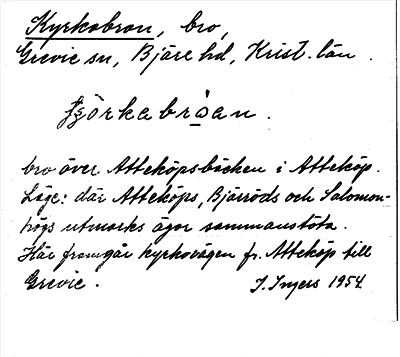 Kyrkobron, bro,
Grevie sn, Bjäre hd, Krist. län.
bro över Atteköpsbäcken i Atteköp.
Läge: där Atteköps, Bjärröds och Salomon-
högs utmarks ägor sammanstöta.
Här framgår kyrkovägen fr. Atteköp till
Grevie. I. Ingers 1954